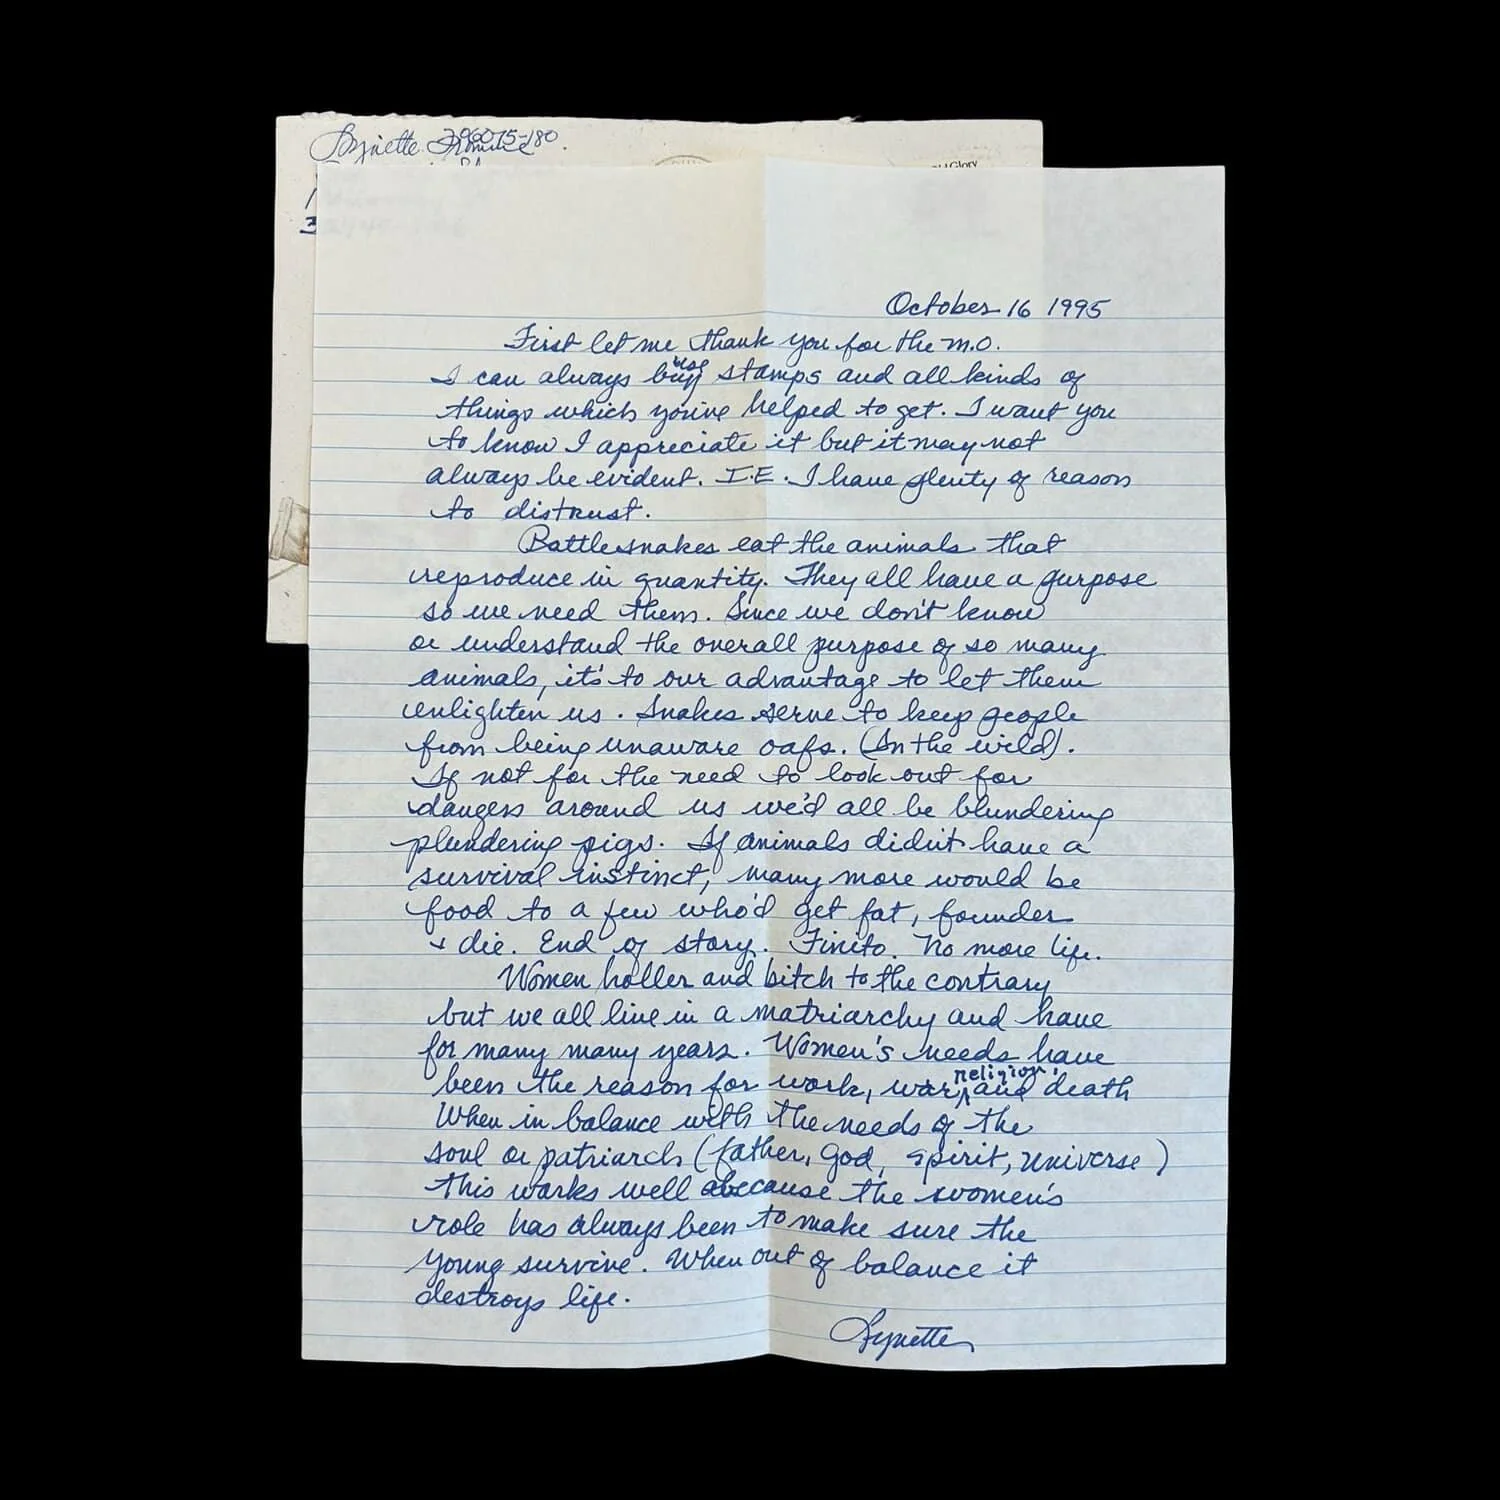 Lynette Fromme
06075-180
3
Old Glory
October 16 1995
First let me thank you for the m.o.
I can always use stamps and all kinds of
things which you've helped to get. I want you
to know I appreciate it but it may not
always be evident. I.E. I have plenty of reason
to distrust.
Rattlesnakes eat the animals that
reproduce in quantity. They all have a purpose
so we need them. Since we don't know
or understand the overall purpose of so many
animals, it's to our advantage to let them
enlighten us. Snakes serve to keep people
from being unaware oafs. (In the wild).
If not for the need to look out for
dangers around us we'd all be blundering
plundering pigs. If animals didn't have a
survival instinct, many more would be
food to a few who'd get fat, founder
& die. End of story. Finito. No more life.
Women holler and bitch to the contrary
but we all live in a matriarchy and have
for many many years. Women's needs have
been the reason for work, war, religion, and death
When in balance with the needs of the
soul or patriarch (father, God, spirit, universe)
this works well because the women's
role has always been to make sure the
young survive. When out of balance it
destroys life.
Lynette